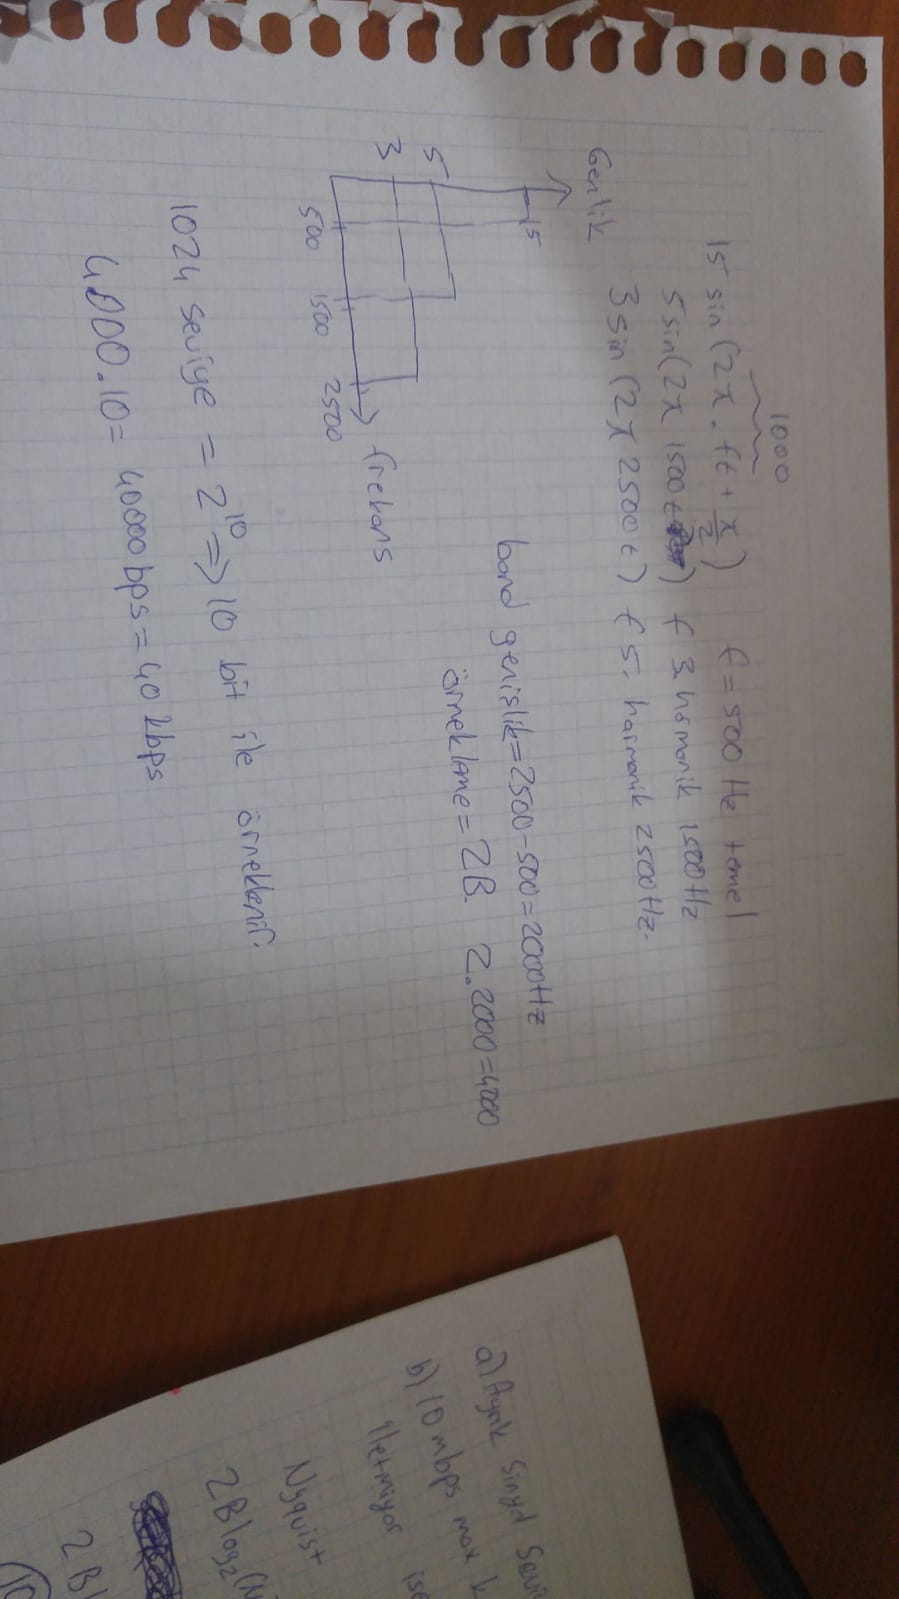 1000
15 sin (2π . ft + π/2) f = 500 Hz temel
5 sin (2π 1500 t ) f 3. harmonik 1500 Hz
3 sin (2π 2500 t) f 5. harmonik 2500 Hz.
Genlik
15
5
3
500 1500 2500
frekans
band genişlik = 2500-500=2000Hz
örnekleme = 2B. 2.2000=4000
1024 seviye = 2^10 => 10 bit ile örneklenir.
4000.10= 40000 bps = 40 kbps
a) Ayrık Sinyal
b) 10 mbps max
iletmiyor ise
Nyquist
2B log2
2B